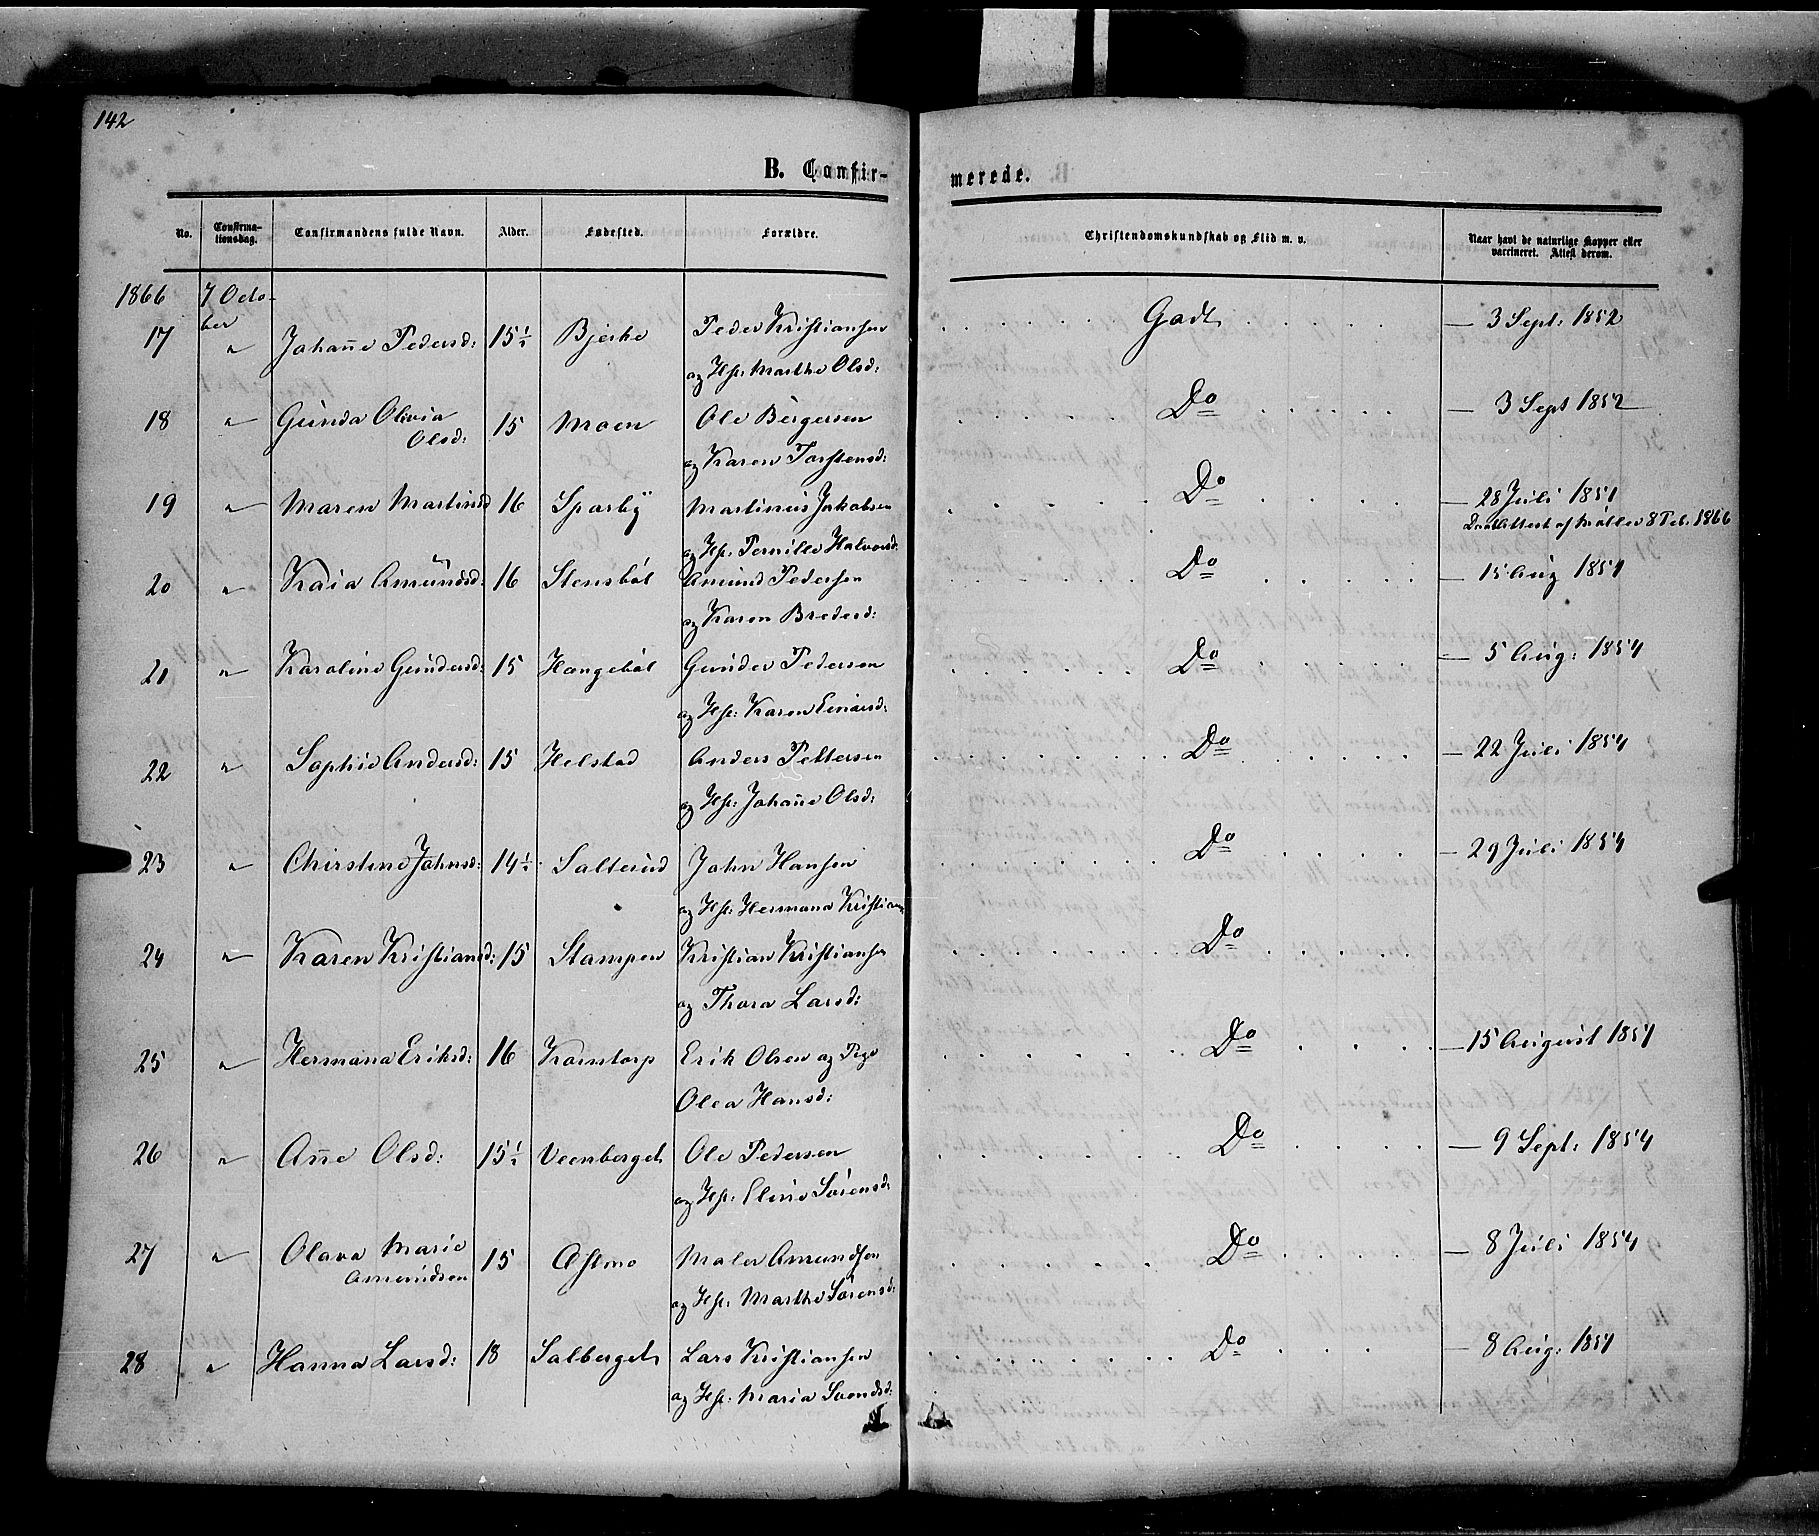 142
B. Confirmerede.
No. Confirmationsdag. Confirmandens fulde Navn. Alder. Fødested. Forældre. Christendomskundskab og Flid m. v. Naar havt de naturlige Kopper eller vaccineret. Attest derom.
1866 7 October
17 " Johan̄e Pedersd: 15½ Bjerke Peder Kristiansen Godt — 3 Sept: 1852
og Hst: Marthe Olsd:
18 " Gunda Olivia Olsd: 15 Moen Ole Børgersen Do — 3 Sept 1852
og Karen Torstensd:
19 " Maren Martinsd 16 Sparby Martinus Jakobsen Do — 28 Juli 1851
og Hst: Pernille Halvorsd: Attest af Møller 8 Feb. 1866
20 " Kaia Amundsd: 16 Stensböl Amund Pedersen Do — 15 Aug 1851
og Karen Bredesd:
21 " Karoline Gundersd: 15 Hængeböl Gunder Pedersen Do — 5 Aug: 1854
og Hst: Karen Einarsd:
22 " Sophie Andersd: 15 Helstad Anders Pettersen Do — 22 Juli 1854
og Hst: Johan̄e Olsd:
23 " Chirstine Johnsd: 14½ Salterud John Hansen Do — 29 Juli 1854
og Hst: Hermana Kristians
24 " Karen Kristiansd: 15 Stampen Kristian Kristiansen Do
og Thora Larsd:
25 " Hermana Eriksd: 16 Korntorp Erik Olsen og Pige Do — 15 August 1851
Olea Hansd:
26 " An̄e Olsd: 15½ Veenberget Ole Pedersen Do — 9 Sept: 1854
og Hst: Eline Sörensd:
27 " Olava Marie Amundsen 15 Astmo Maler Amundsen Do — 8 Juli 1854
og Hst: Marthe Sörensd:
28 " Hanna Larsd: 18 Salberget Lars Kristiansen Do — 8 Aug: 1851
og Hst: Maria Svendsd: